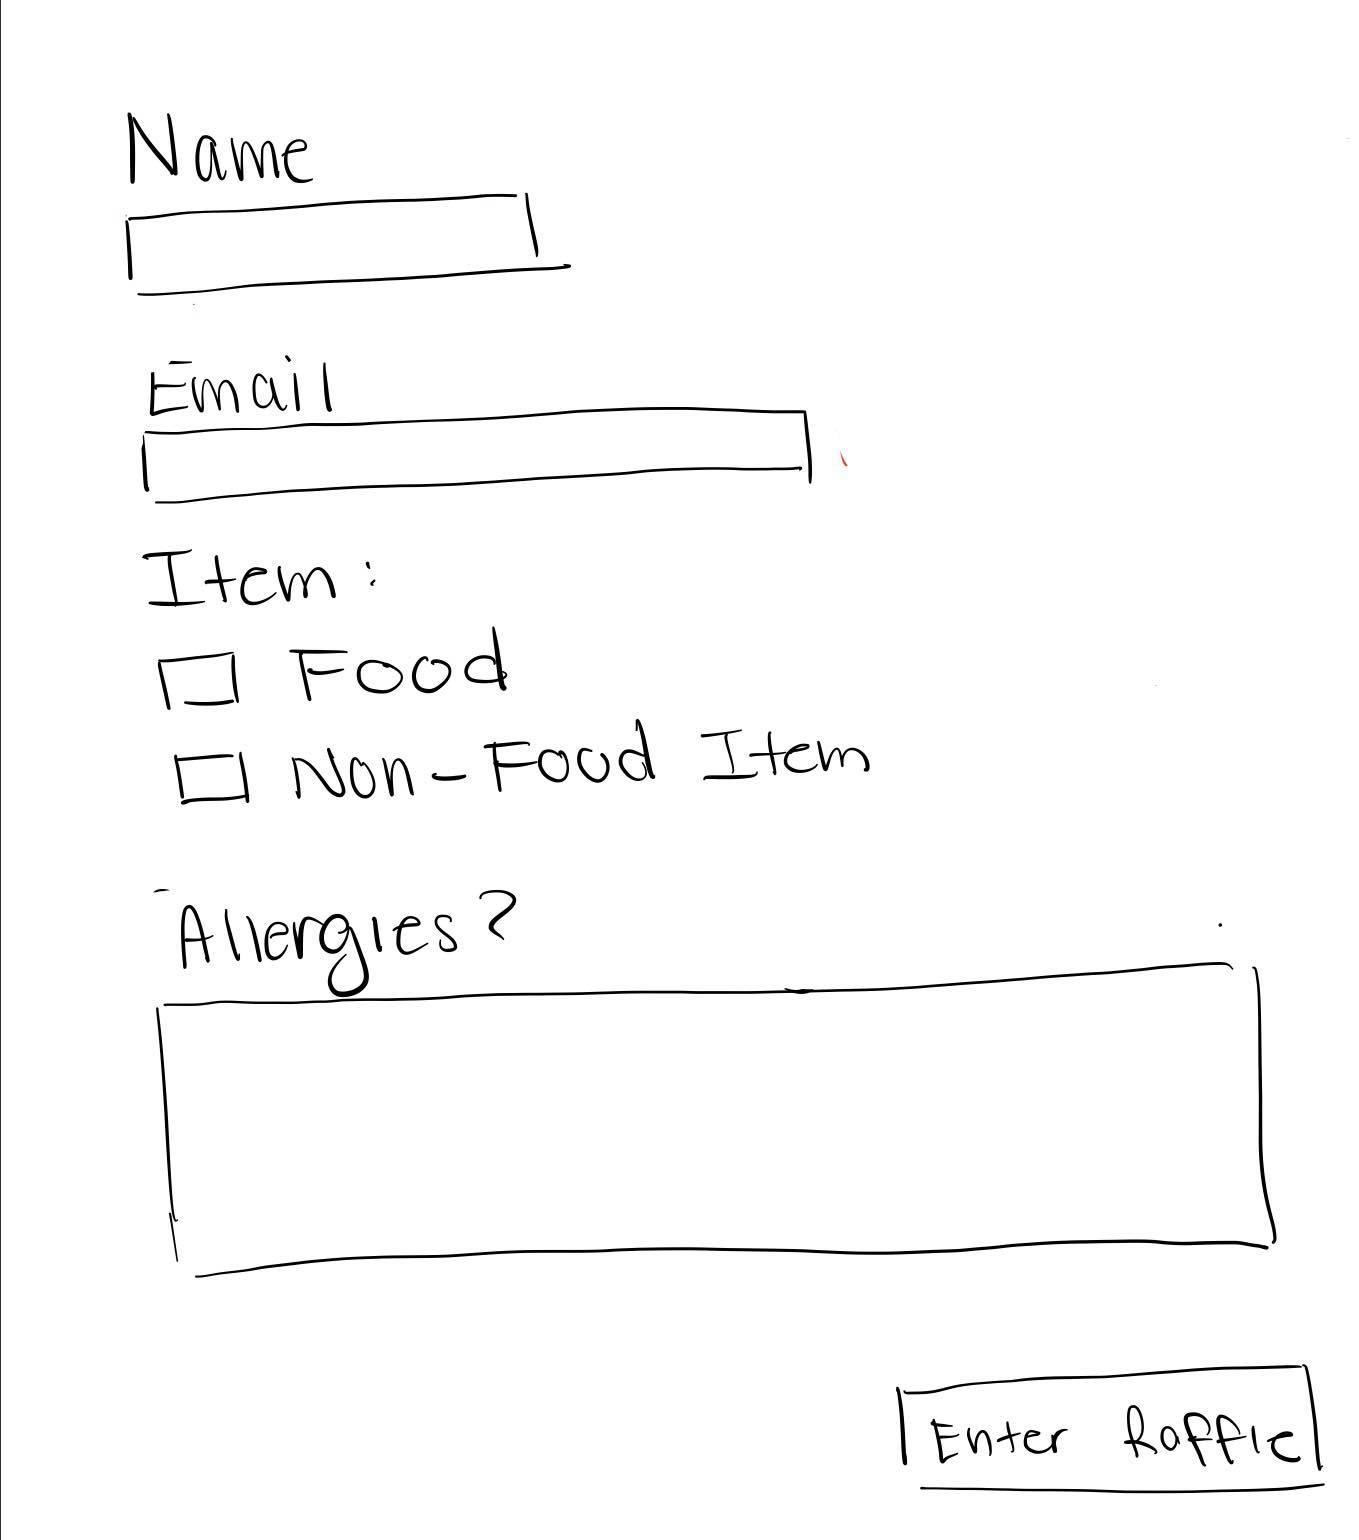 Name
Email
Item:
Food
Non-Food Item
Allergies?
Enter Raffle